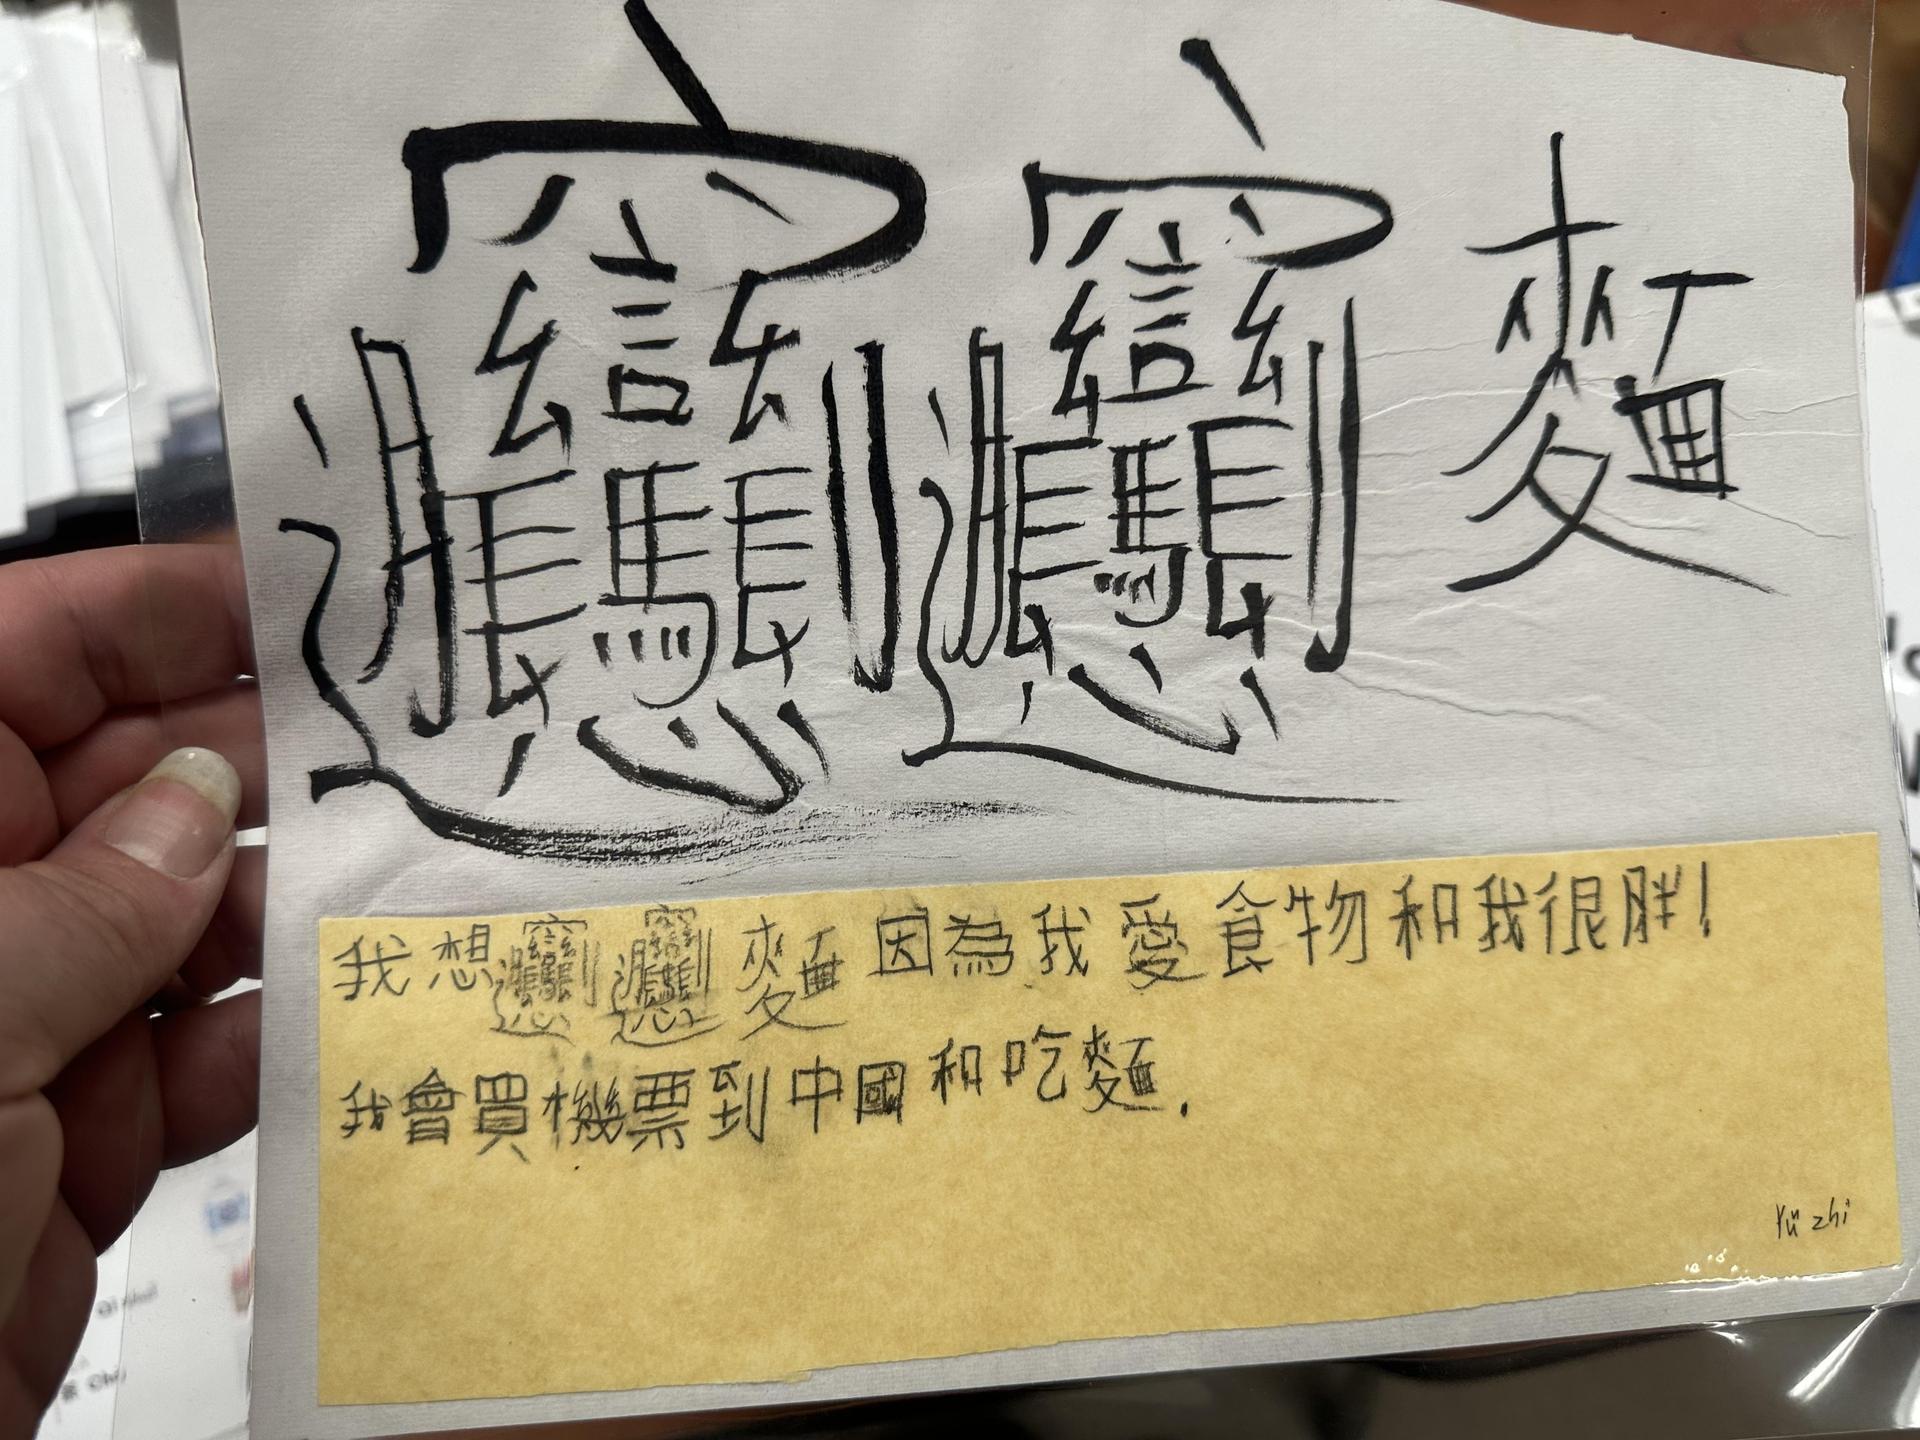 𰻞𰻞麵
我想𰻞𰻞麵因為我愛食物和我很胖!
我會買機票到中國和吃麵.
Yǔ zhi